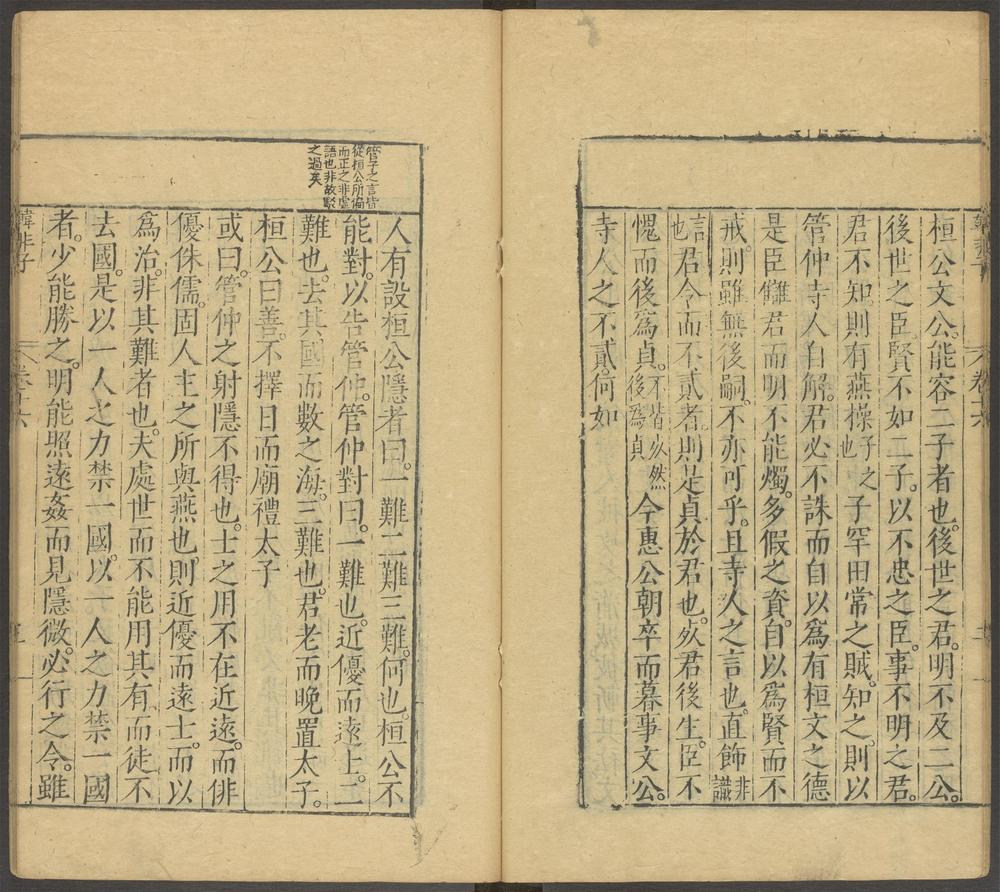 桓公文公。能容二子者也。後世之君。明不及二公。
後世之臣。賢不如二子。以不忠之臣。事不明之君。
君不知。則有燕操子之也子罕田常之賊。知之。則以
管仲寺人自解。君必不誅而自以爲有桓文之德
是臣讎君而明不能燭。多假之資。自以爲賢而不
戒。則雖無後嗣。不亦可乎。且寺人之言也。直飾非識
言也君令而不貳者。則是貞於君也。死君後生。臣不
愧而後爲貞。不皆死然後爲貞今惠公朝卒而暮事文公。
寺人之不貳。何如
管子之言皆
從桓公所偏
而正之非虛
語也非故聚
之過矣
人有設桓公隱者曰。一難二難三難。何也。桓公不
能對。以告管仲。管仲對曰。一難也。近優而遠士。二
難也。去其國而數之海。三難也。君老而晚置太子。
桓公曰善。不擇日而廟禮太子
或曰。管仲之射隱不得也。士之用不在近遠。而俳
優侏儒。固人主之所與燕也。則近優而遠士。而以
爲治。非其難者也。夫處世而不能用其有。而徒不
去國。是以一人之力禁一國。以一人之力禁一國
者。少能勝之。明能照遠姦而見隱微。必行之令。雖
韓非子 卷十六